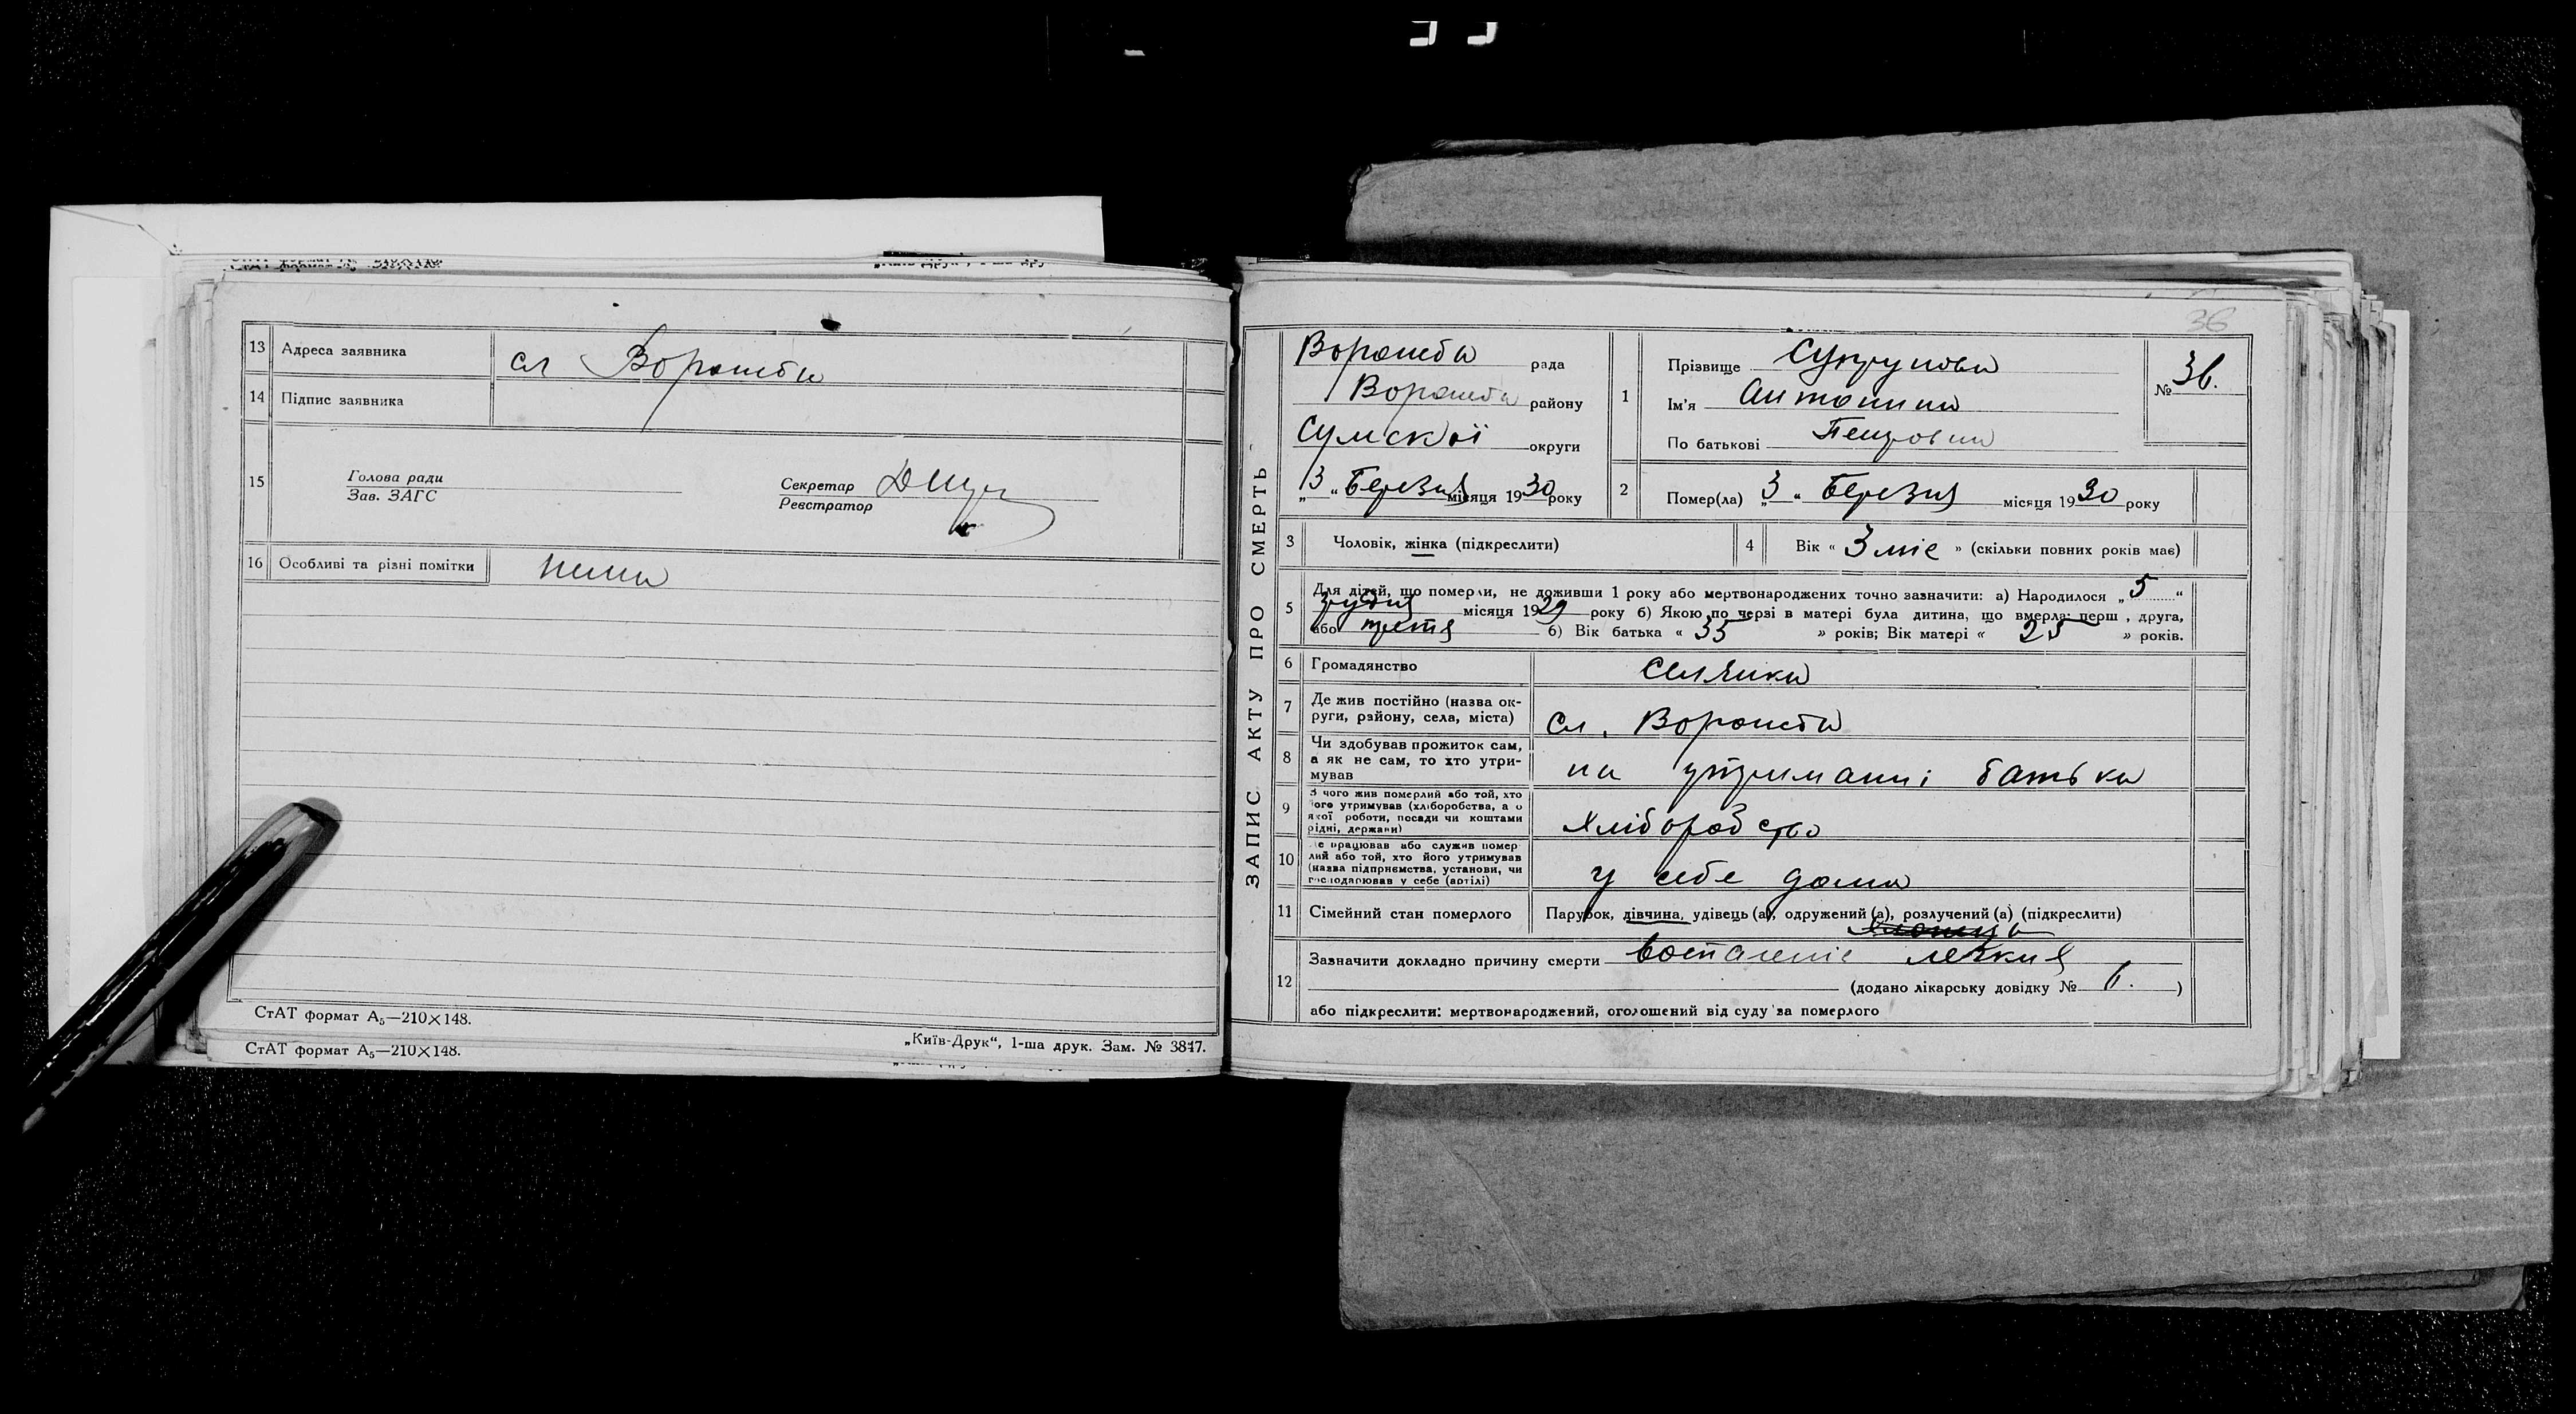 13 Адреса заявника сл Ворожба
14 Підпис заявника
15 Голова ради
Зав. ЗАГС
Секретар
Реєстратор
16 Особливі та різні помітки нима
СтАТ формат А₅—210×148.
„Київ-Друк“, 1-ша друк. Зам. № 3847.
СтАТ формат А₅—210×148.
36
ЗАПИС АКТУ ПРО СМЕРТЬ
Ворожба рада
Ворожба району
Сумської округи
„3“ Березня місяця 1930 року
1 Прізвище Супрунова
Ім'я Антонина
По батькові Петровна
№ 36.
2 Помер(ла) „3“ Березня місяця 1930 року
3 Чоловік, жінка (підкреслити)
4 Вік « 3 міс » (скільки повних років має)
5 Для дітей, що померли, не доживши 1 року або мертвонароджених точно зазначити: а) Народилося „5“
грудня місяця 1929 року б) Якою по черзі в матері була дитина, що вмерла: перш , друга,
або третя б) Вік батька « 33 » років; Вік матері « 25 » років.
6 Громадянство Селянка
7 Де жив постійно (назва ок-
руги, району, села, міста) сл. Ворожба
8 Чи здобував прожиток сам,
а як не сам, то хто утри-
мував на утриманні батька
9 З чого жив померлий або той, хто
його утримував (хліборобства, а о
якої роботи, посади чи коштами
рідні, держави) Хліборобство
10 Де працював або служив помер
лий або той, хто його утримував
(назва підприємства, установи, чи
господарював у себе (артілі) у себе дома
11 Сімейний стан померлого Парубок, дівчина, удівець (а), одружений (а), розлучений (а) (підкреслити)
12 Зазначити докладно причину смерти воспаленіє легкия
(додано лікарську довідку № б. )
або підкреслити: мертвонароджений, оголошений від суду за померлого